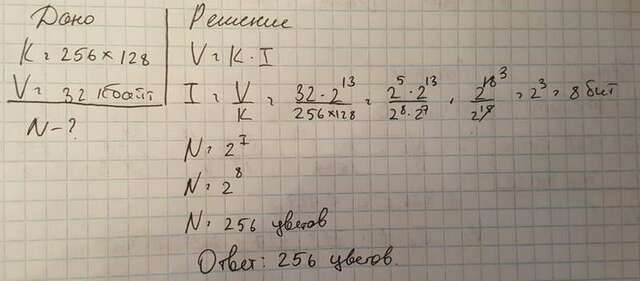 Дано
K = 256 × 128
V = 32 Кбайт
N - ?
Решение
V = K · I
I = V/K = 32 · 2^13 / 256 × 128 = 2^5 · 2^13 / 2^8 · 2^7 = 2^18 3 / 2^15 = 2^3 = 8 бит
N = 2^7
N = 2^8
N = 256 цветов
Ответ: 256 цветов.